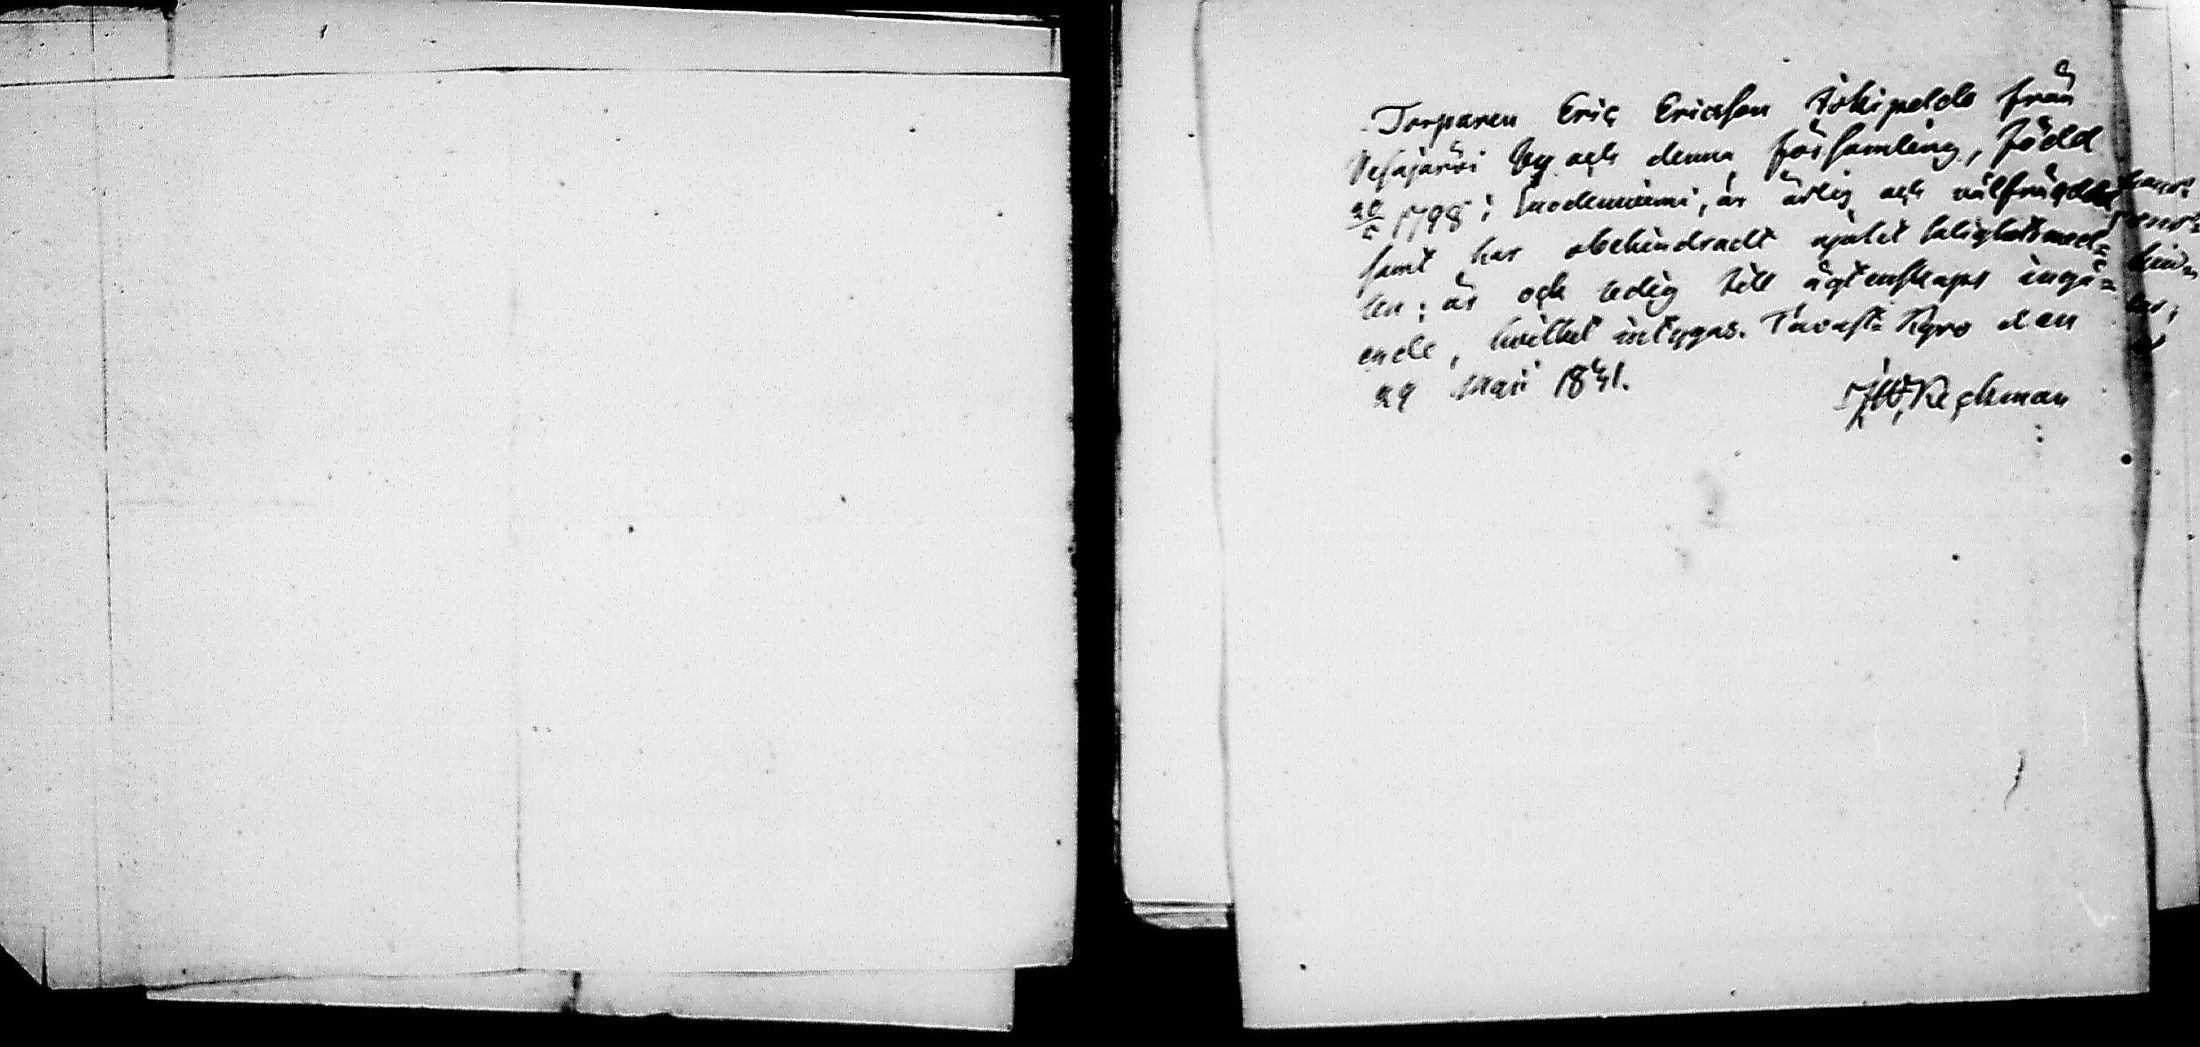 Torparen Eric Ericsson Jokipeldo från
Vesajärvi by och denna församling, född
20/2 1798 i Enodenniemi, är ärlig och välfrägdad
samt har obehindradt njutit salighetsmed=
len; är och ledig till ägtenskaps ingå=
ende, hvilket intygas. Tavast-Kyro den
29 Maji 1841.
Reckman